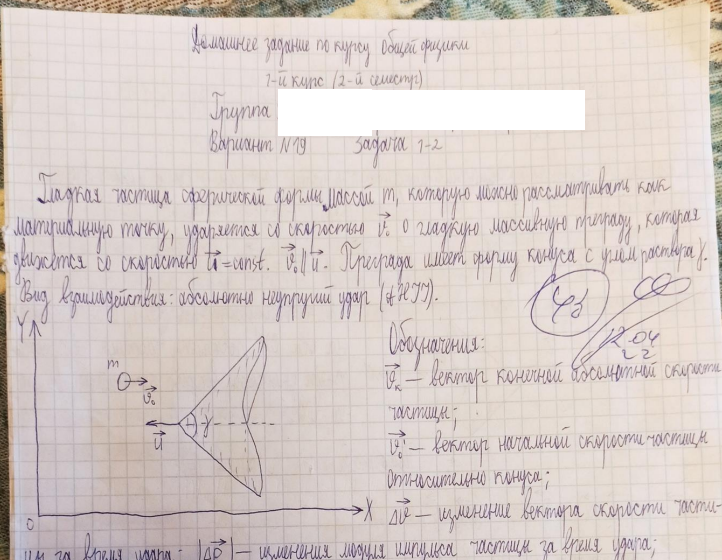 Домашнее задание по курсу общей физики
1-й курс (2-й семестр)
Группа
Вариант N19 Задача 1-2
Гладкая частица сферической формы массой m, которую можно рассматривать как
материальную точку, ударяется со скоростью v₀ о гладкую массивную преграду, которая
движется со скоростью u = const. v₀ || u. Преграда имеет форму конуса с углом раствора γ.
Вид взаимодействия: абсолютно неупругий удар (АНУ).
Y
Обозначения:
12.04
22
m
v₀
vₖ — вектор конечной абсолютной скорости
частицы;
γ
u
v₀' — вектор начальной скорости частицы
относительно конуса;
0
X
Δv — изменение вектора скорости части-
цы за время удара; |Δp| — изменения модуля импульса частицы за время удара;